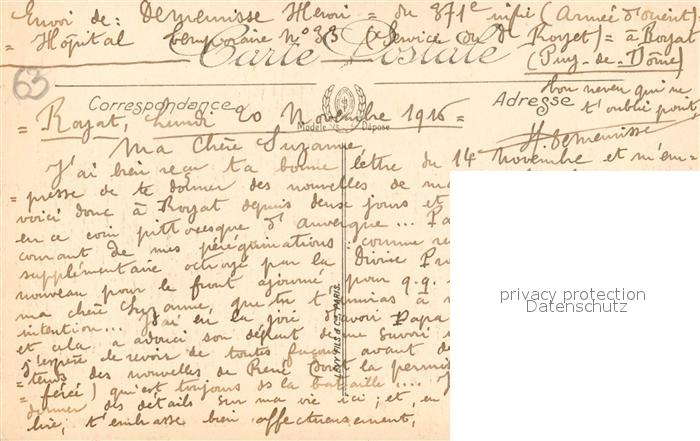 Envoi de: Demeurisse Henri = du 371e infie (Armée d'orient)
= Hôpital temporaire No 33 (Service du Dr Royet) = à Royat
Carte Postale
(Puy-de-Dôme)
63
Correspondance
Adresse
Modèle Déposé
ton neveu qui ne
t'oublie point,
H. Demeurisse
= Royat, Lundi 20 Novembre 1916 =
Ma Chère Suzanne,
J'ai bien reçu ta bonne lettre du 14 Novembre et m'em-
= presse de te donner des nouvelles de
voici donc à Royat depuis deux jours et
en ce coin pittoresque d'auvergne ...
courant de mes pérégrinations: comme
supplémentaire octroyé par la Divine
nouveau pour le front ajourné pour q.q.
ma chère Suzanne, que tu
intention... J'ai eu la joie d'avoir Papa
et cela a adouci son départ
J'espère le revoir de toutes façons avant
= tends des nouvelles de René (dont la
= férée) qu'est toujours ds la bataille ....
donner des détails sur ma vie ici; et, en
lire, t'embrasse bien affectueusement,
LEVY FILS & Cie PARIS
privacy protection
Datenschutz